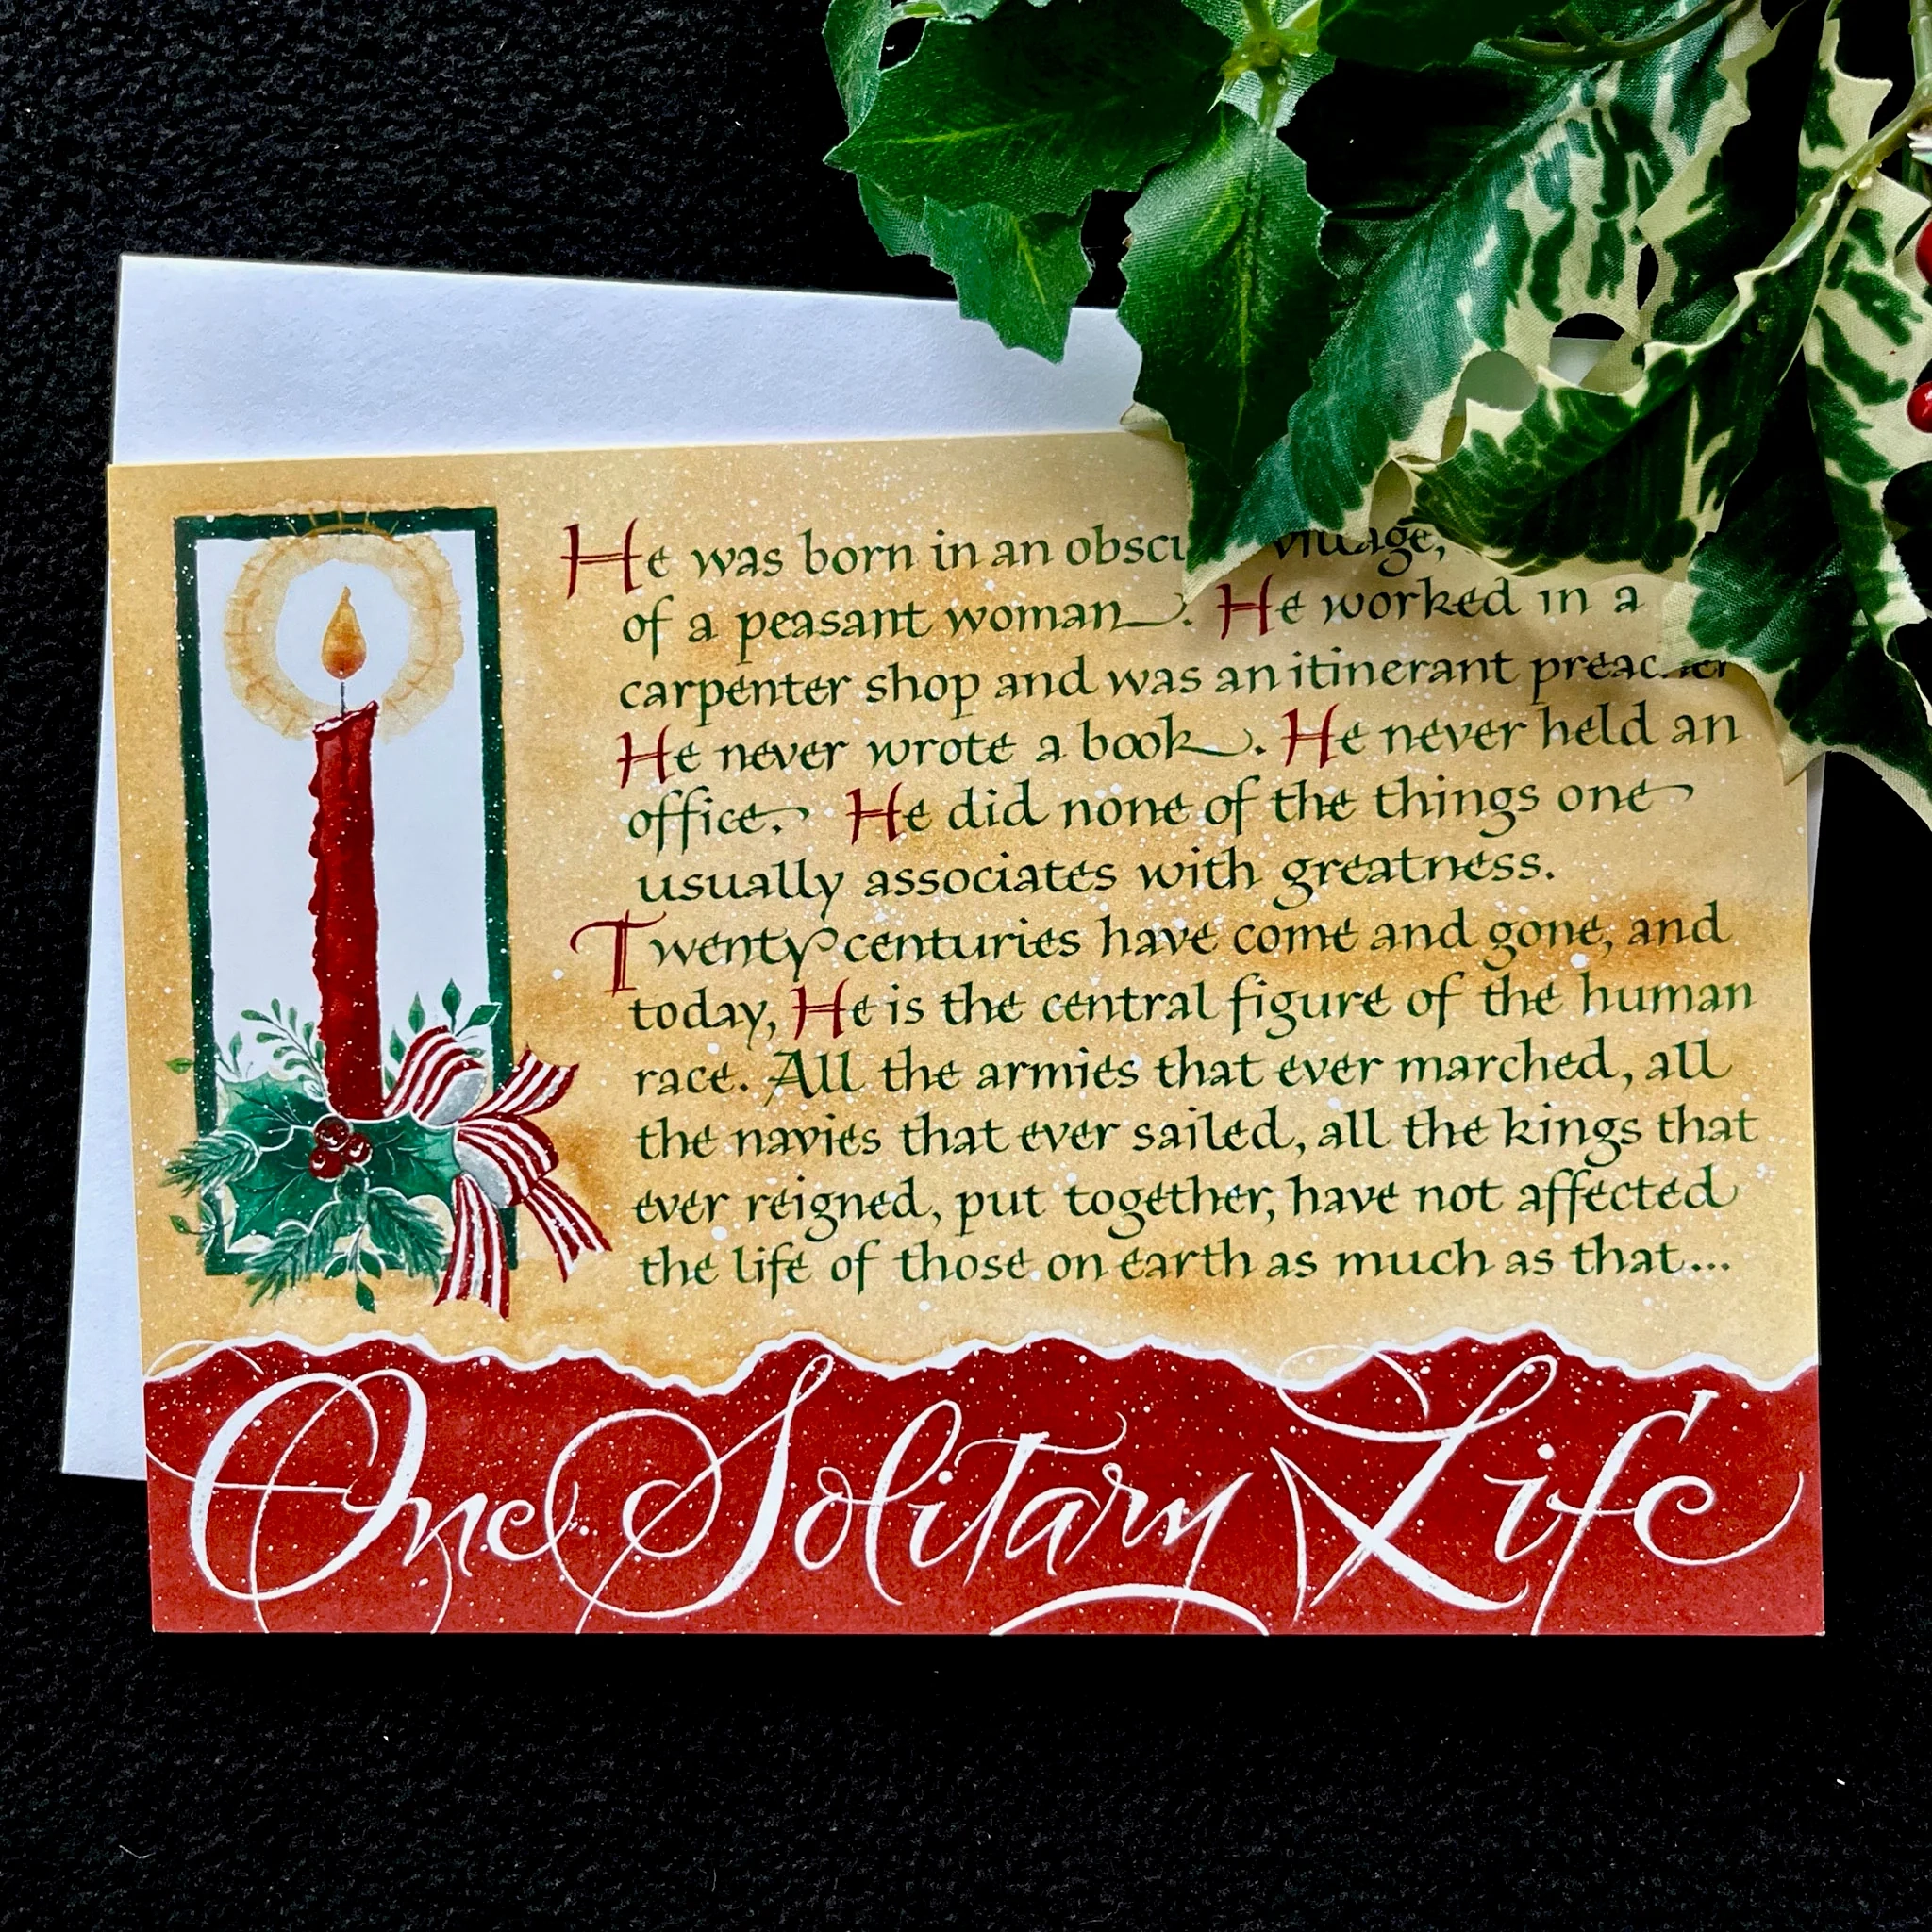 He was born in an village,
of a peasant woman. He worked in a
carpenter shop and was an itinerant preacher
He never wrote a book. He never held an
office. He did none of the things one
usually associates with greatness.
Twenty centuries have come and gone, and
today, He is the central figure of the human
race. All the armies that ever marched, all
the navies that ever sailed, all the kings that
ever reigned, put together, have not affected
the life of those on earth as much as that...
One Solitary Life